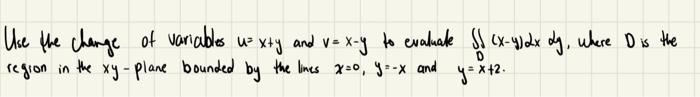 Use the change of variables u= x+y and v= x-y to evaluate ∬ (x-y)dx dy, where D is the
D
region in the xy-plane bounded by the lines x=0, y=-x and y=x+2.